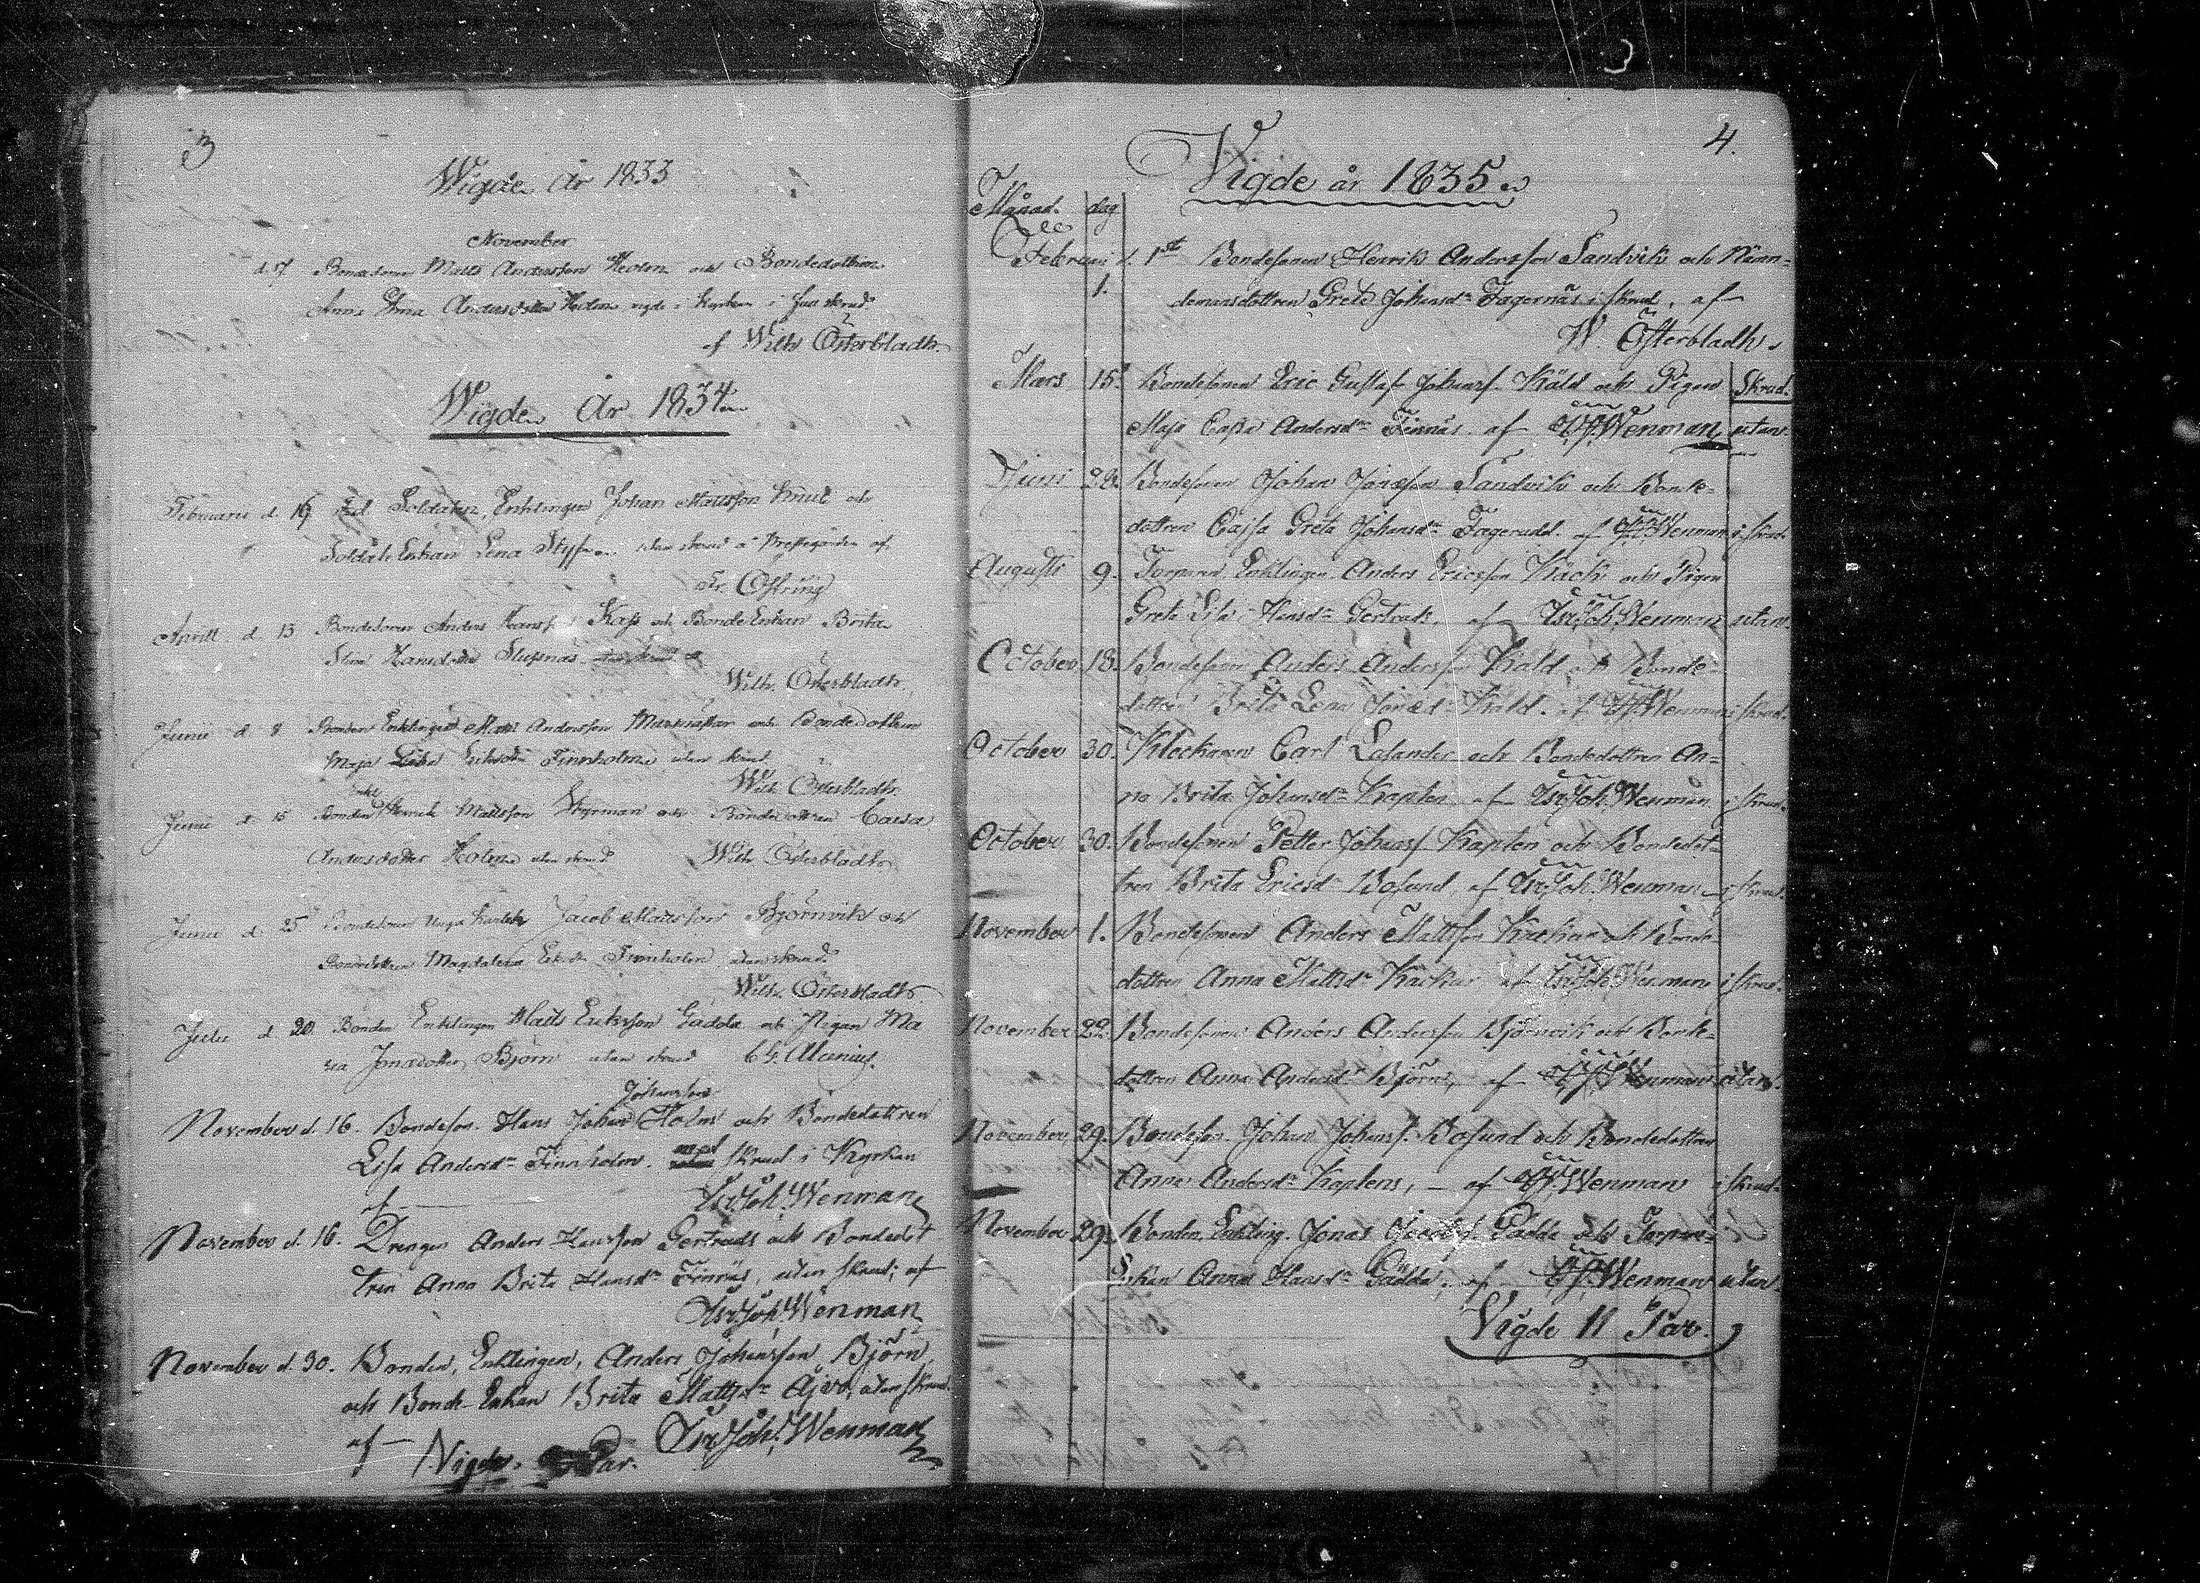 3
Wigde År 1833
November
d. 17 Bondesonen Matts Andersson Holm och Bondedottren
Anna Andersdotter Holm vigde i kyrkan i skrud
af Wilh Österbladh
Wigde År 1834
Februari d. 16 Soldaten, Enklingen Johan Mattsson Knut och
Soldats Enkan Lena Styf utan skrud å Prestgården af
Fr. Östring
Aprill d. 13 Bondesonen Anders Hansson Kass och Bonde Enkan Brita
Stina Hansdotter
Wilh. Österbladh
Junii d. 8 Bonden Enklingen Matts Andersson och Bondedottren
Maja Ersdotter Finnholm utan skrud
Wilh. Österbladh
Junii d. 15 Bonden Henrik Mattsson Styrman och Bondedottren Caisa
Andersdotter Holm utan skrud Wilh Österbladh
Junii d. 25 Bondesonen Unga Karlen Jacob Mattsson Björnvik och
Bondedottren Magdalena Finnholm utan skrud
Wilh. Österbladh
Julii d. 20 Bonden Enklingen Matts Ericsson Gädda och Pigan Ma
ria Jonædotter Björn utan skrud C.G. Alcenius.
Johansson
November d. 16. Bondeson. Hans Johan Holm och Bondedottren
Lisa Andersdr Finnholm. med skrud i Kyrkan
af Isr. Joh. Wenman
November d. 16. Drengen Anders Hansson Gertruds och Bondedot
tren Anna Brita Hansdr Finnäs, utan skrud; af
Isr. Joh. Wenman
November d. 30. Bonden, Enklingen, Anders Johansson Björn
och Bonde Enkan Brita Mattsdr Ajvo, utan skrud.
af — Isr. Joh. Wenman
Vigde Par.
4.
Vigde år 1835
Månad. dag
Februari d. 1st Bondesonen Henrik Andersson Sandvik och Näm=
1. demansdottren Greta Johansdr Fagernäs i skrud, af
W. Österbladh.
Mars 15. Bondesonen Eric Gustaf Johanss. Käld och Pigan Skrud.
Maja Caisa Andersdr Finnäs af Wenman utan.
Juni 28. Bondesonen Johan Jonæson Sandvik och Bonde=
dottren Cajsa Greta Johansdr Fagerudd. af Wenman i skrud
Augusti 9. Torparen Enklingen Anders Ericsson Käck och Pigan
Greta Lisa Hansdr Gertruds. af Isr. Joh. Wenman utan.
October 18. Bondesonen Anders Andersson Käld och Bonde=
dottren Brita Lena Jonædr Käld. af Wenman i skrud.
October 30. Klockaren Carl Lalander och Bondedottren An=
na Brita Johansdr Kaplen af Isr. Joh. Wenman i skrud.
October 30. Bondesonen Petter Johanss. Kaplen och Bondedot=
tren Brita Ericsdr Bosund af Isr. Joh. Wenman i skrud.
November 1. Bondesonen Anders Mattsson Käckar och Bonde
dottren Anna Mattsdr Käckar af Isr. Joh. Wenman i skrud.
November 22. Bondesonen Anders Andersson Björnvik och Bonde=
dottren Anna Andersdr Björn, af Wenman utan.
November 29. Bondeson. Johan Johanss. Bosund och Bondedottren
Anna Andersdr Kaplens, — af Wenman i skrud.
November 29. Bonden, Enkling. Jonas Gädda och Torpare=
Enkan Anna Hansdr Gädda, af Wenman utan.
Vigde 11 Par.